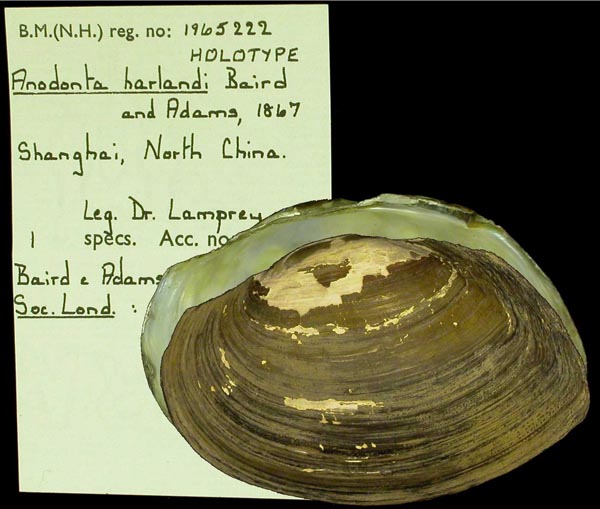 B.M.(N.H.) reg. no: 1965222
HOLOTYPE
Anodonta harlandi Baird
and Adams, 1867
Shanghai, North China.
Leg. Dr. Lamprey
1 specs. Acc. no
Baird & Adams
Soc. Lond. :